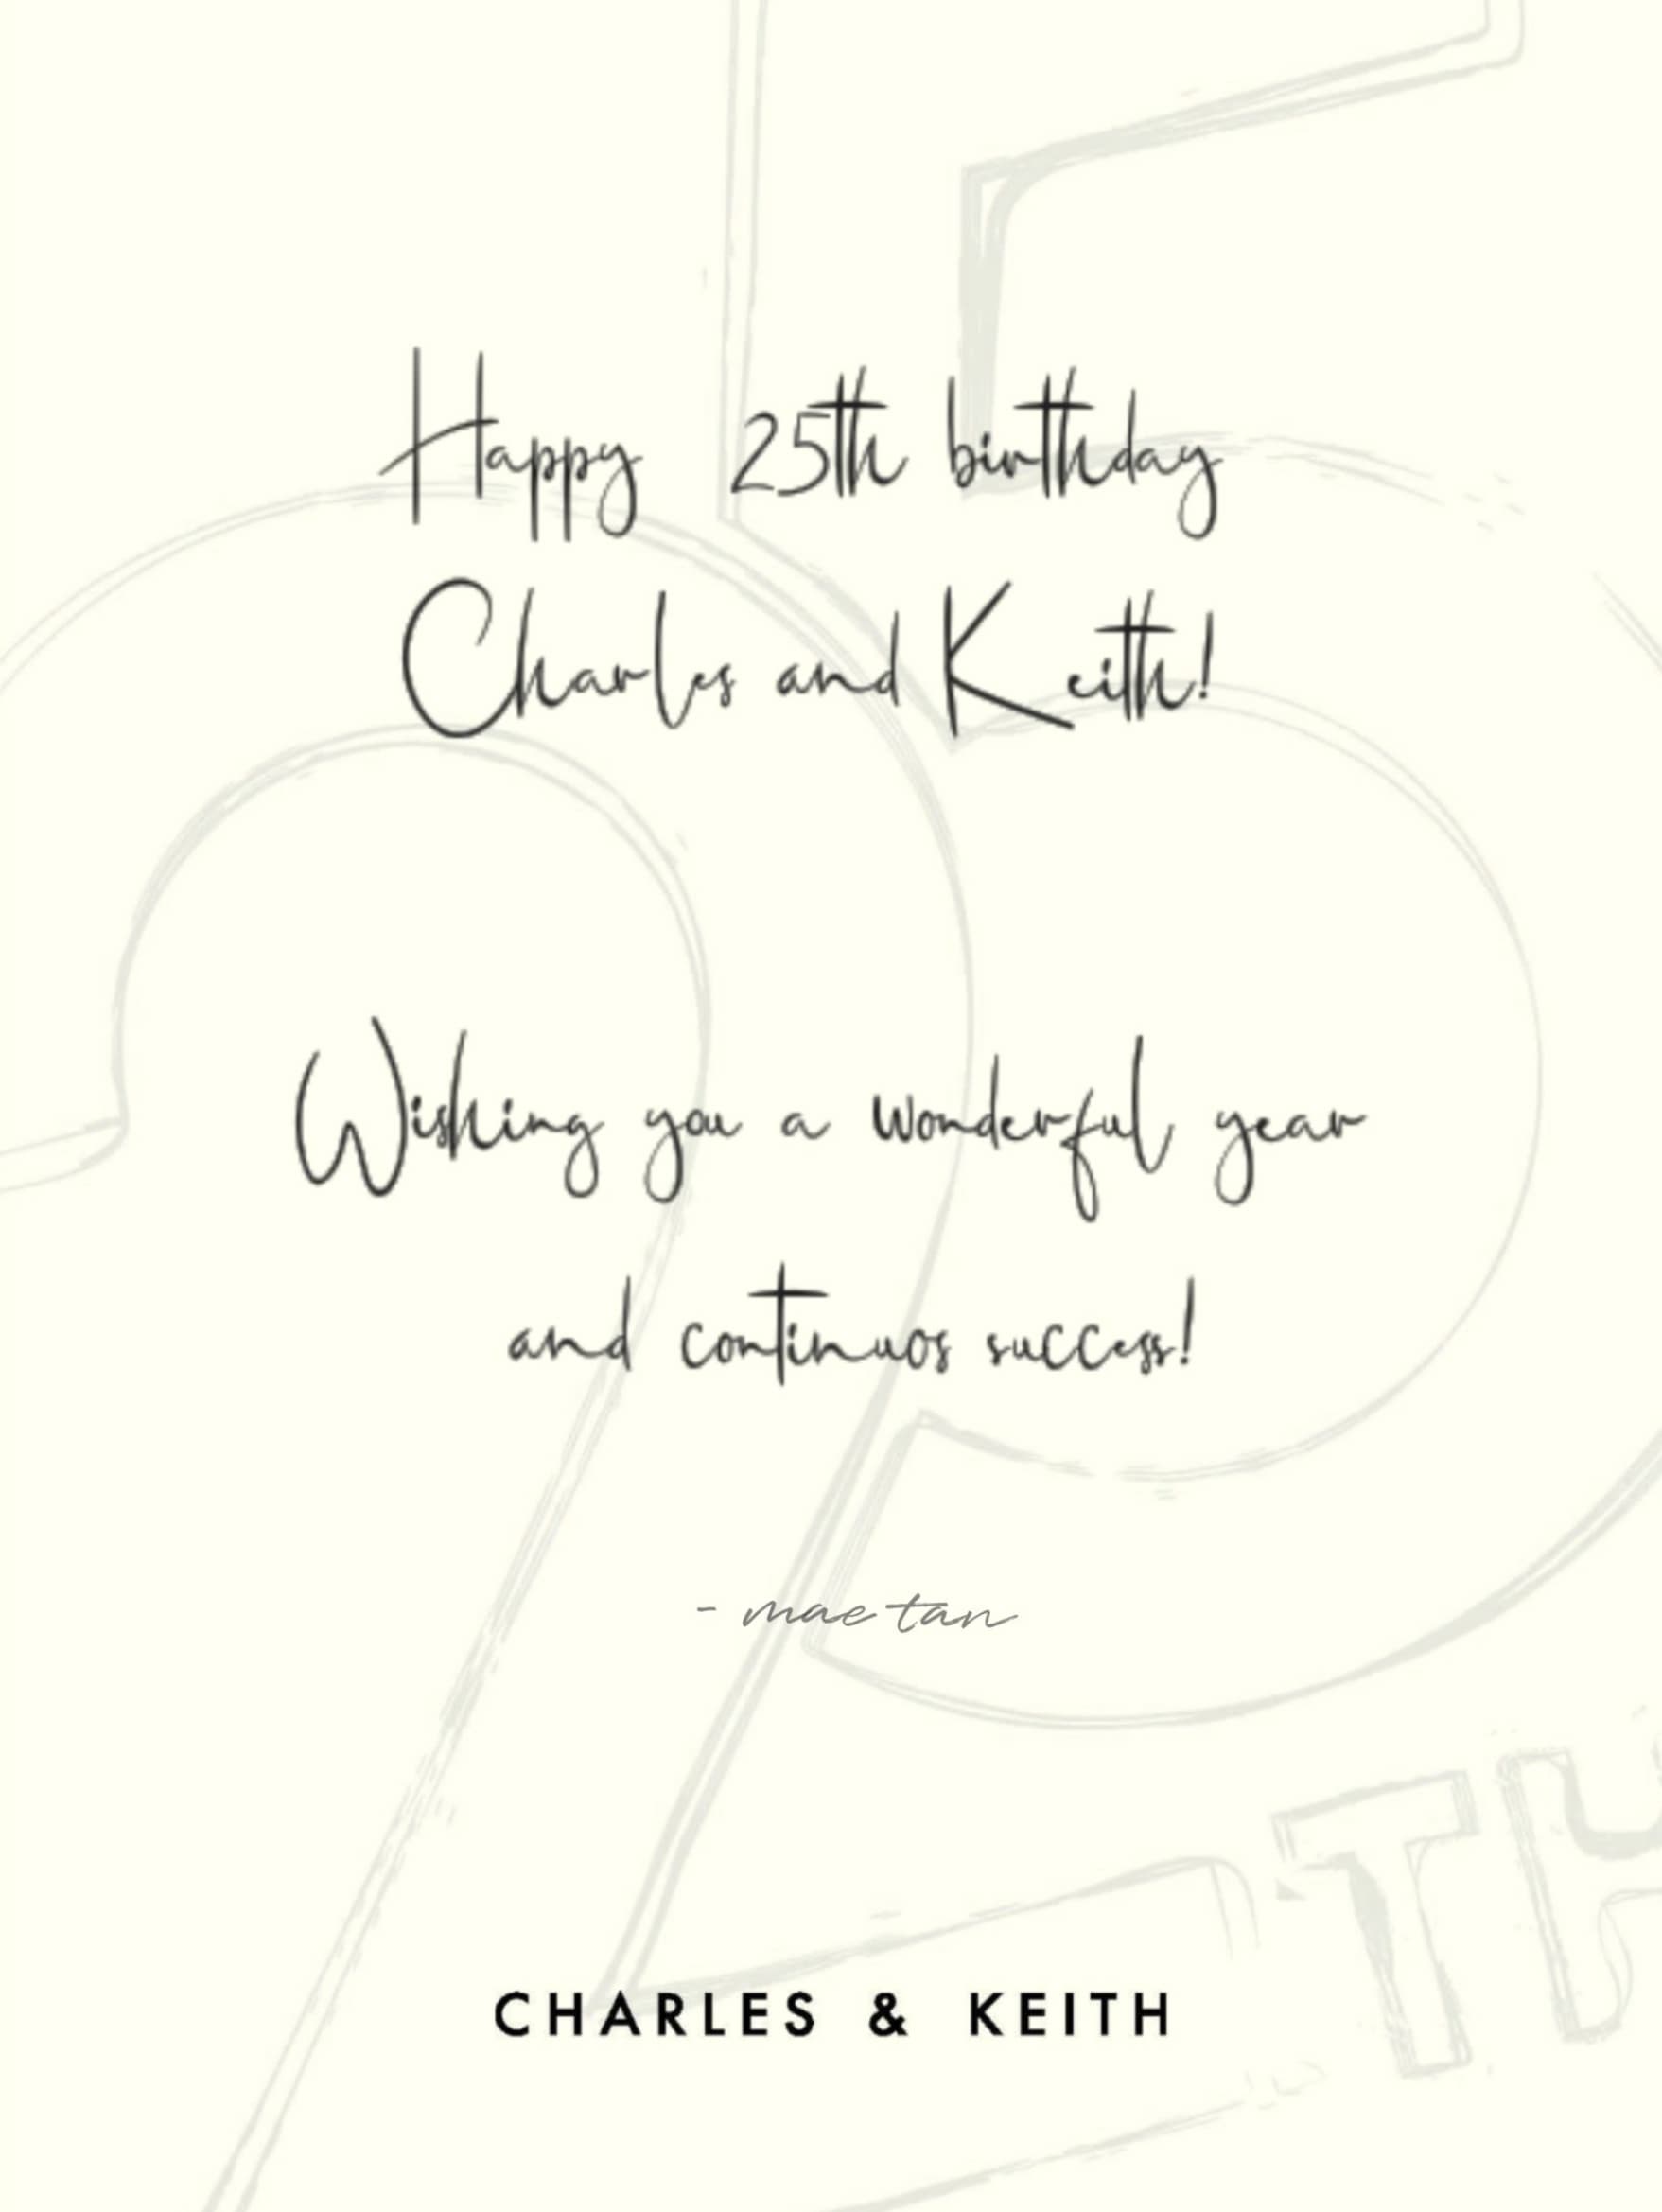 Happy 25th birthday
Charles and Keith!
Wishing you a wonderful year
and continuos success!
- mae tan
CHARLES & KEITH
25
TH